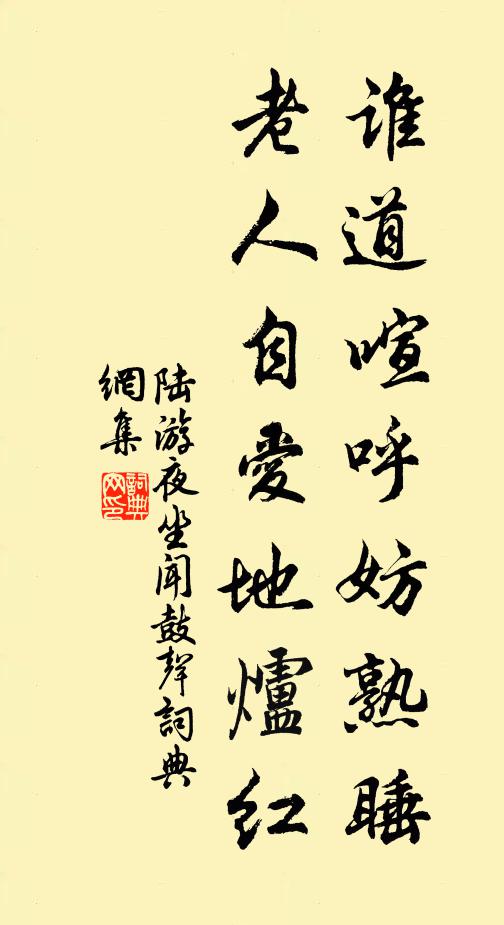 谁道喧呼妨熟睡
老人自愛地爐红
陆游夜坐闻鼓声詞典
網集
詞典
网印